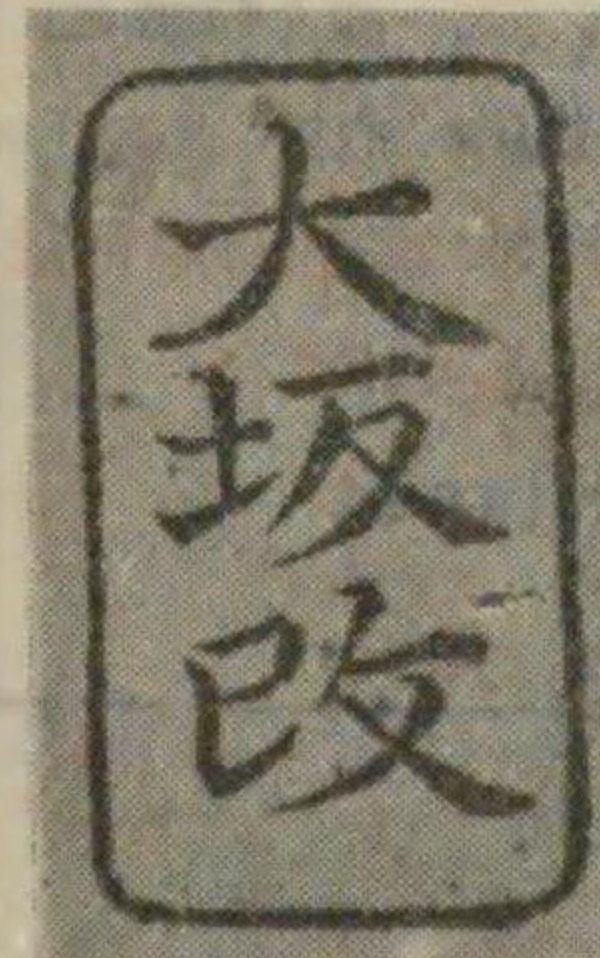 大坂改